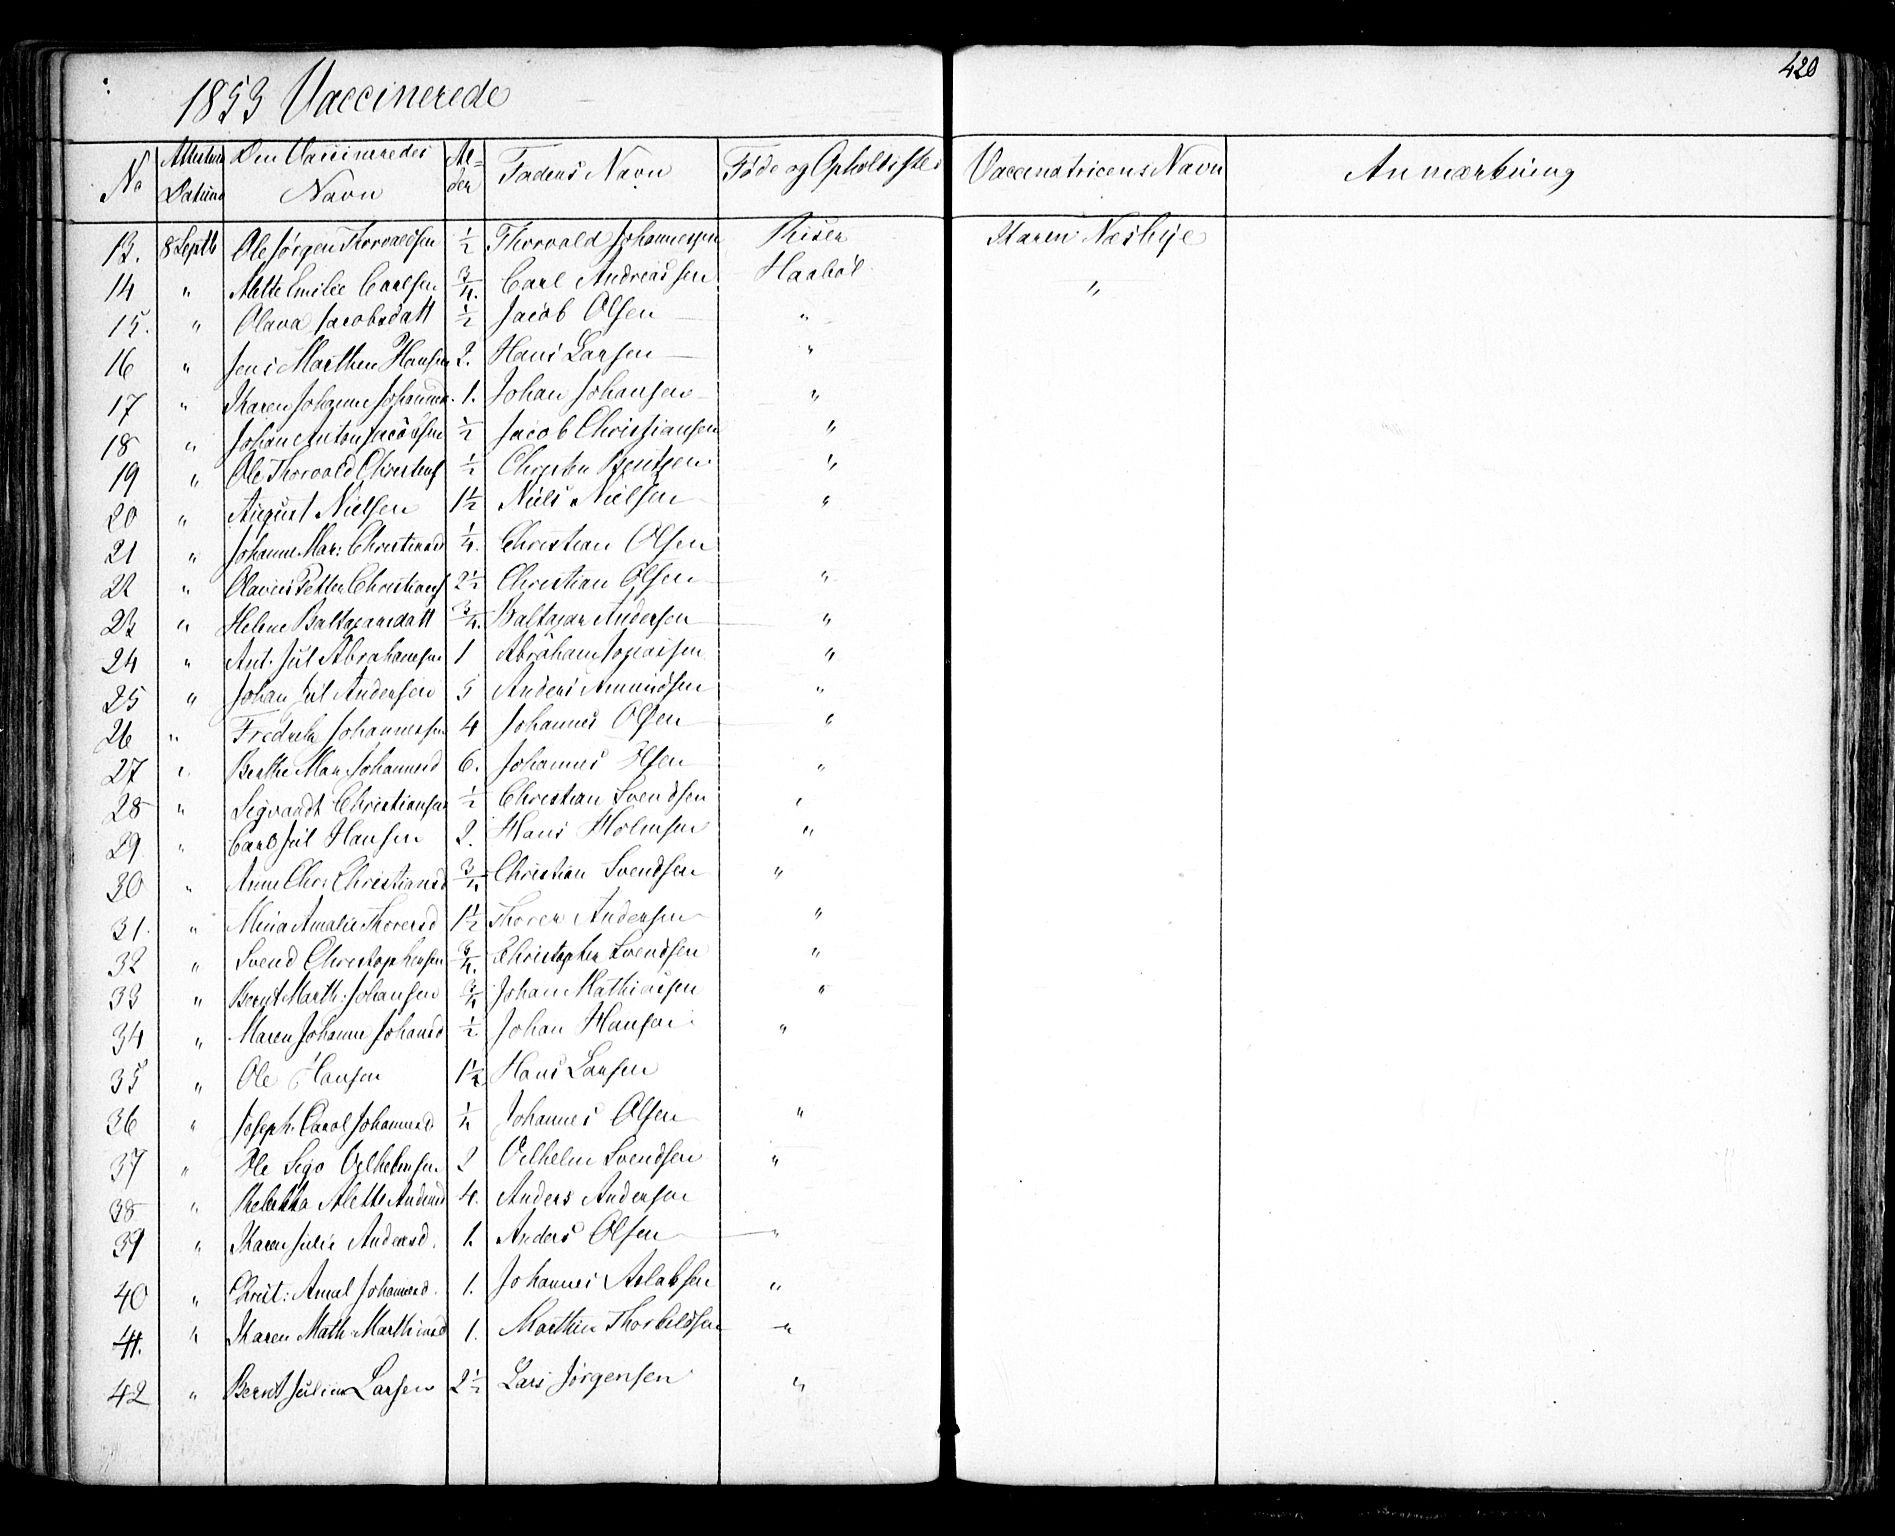 420
1853 Vaccinerede
No Attestens Datum Den Vaccineredes Navn Al-der Faderens Navn Føde og Opholdssted Vaccinatricens Navn Anmærkning
13. 8 Septb Ole Jørgen Thorvaldsen ½ Thorvald Johannessen Riser Karen Næsbye
14 " Alette Emilie Carlsen ¾. Carl Andreassen Haabøl "
15. " Olava Jacobsdatt ½ Jacob Olsen "
16 " Jens Marthin Hansen 2. Hans Larsen "
17 " Karen Johanne 1. Johan Johansen "
18 " Johan Anton Jacobsen ½ Jacob Christiansen "
19 " Ole Thorvald Christens ½ Christen Bentsen "
20 " August Nielsen 1½ Niels Nielsen "
21 " Johanne Mar: ¼. Christian Olsen
22 " Olavus Petter Christians 2½ Christian Olsen "
23 " Helene Baltzarsdatt ¾. Baltazar Andersen "
24 " Ant. Jul Abrahamsen 1 Abraham "
25 " Johan Jul Andersen 5 Anders Amundsen "
26 " Fredrik Johannessen 4 Johannes Olsen "
27 " Berthe Mar. Johannesd 6. Johannes Olsen "
28 " Sigvardt Christiansen ½ Christian Svendsen "
29 " Carl Jul Hansen 2. Hans Holmsen "
30 " Anne Chr: Christiansd ¾ Christian Svendsen "
31. " Mina Amalie Thoresd 1½ Thorer Andersen "
32 " Svend Christophersen ¾. Christopher Svendsen "
33 " Bernt Marth: Johansen ¾ Johan Mathiassen "
34 " Maren Johanne Johansd ½ Johan Hansen "
35 " Ole Hansen 1½ Hans Larsen
36 " Joseph. Carol Johannesd ¼ Johannes Olsen "
37 " Ole Sigv Vilhelmsen 2 Vilhelm Svendsen "
38 " Rebekka Alette Andersd 4. Anders Andersen
39 " Karen Julie Andersd. 1. Anders Olsen "
40 " Christ: Amal Johannesd. 1. Johannes Aslaksen "
41. " Karen Math. Marthinsd 1. Marthin Thorkildsen "
42 " Bernt Julius Larsen 2½ Lars Jørgensen "